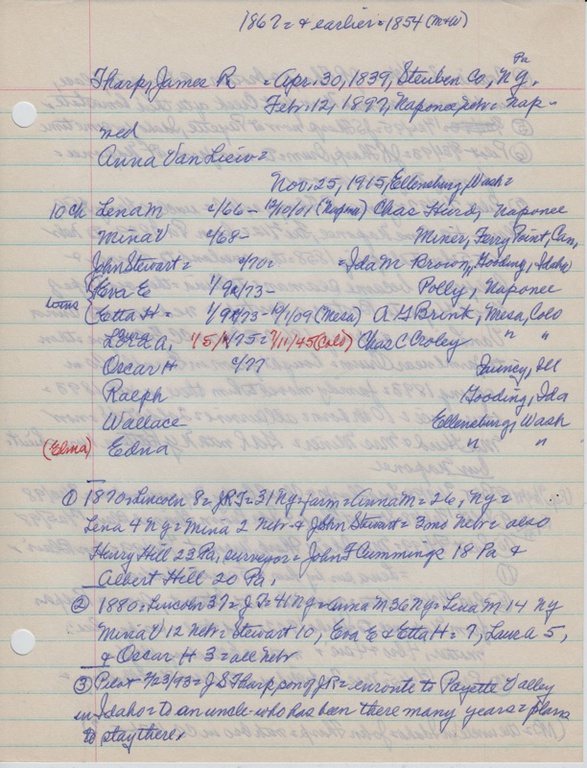 1867 = & earlier = 1854 (M & W)
Pa
Tharp, James R = Apr. 30, 1839, Steuben Co, N.Y.
Feb. 12, 1897, Naponee, Nebr = Nap-
nee
Anna Van Liew =
Nov. 25, 1915, Ellensburg, Wash =
10 Ch Lena M c/66 - 12/10/01 (Napna) Chas Hurd, Naponee
Mina V c/68 - Miner, Ferry Point, Can,
John Stewart = c/70 = = Ida M Brown, Gooding, Idaho
(Eva E 1/9/73 - Polly, Naponee
twins (Etta H = 1/9/73 - 10/1/09 (Mesa) A G Brink, Mesa, Colo
Laura A, 1/5/75 = 7/11/45 (Colo) Chas C Croley " "
Oscar H c/77 Quincy, Ill
Ralph Gooding, Ida
Wallace Ellensburg, Wash
(Elma) Edna " "
① 1870 = Lincoln 8 = J R T = 31 Ny = farm = Anna M = 26, Ny =
Lena 4 Ny = Mina 2 Nebr & John Stewart = 3 mo Nebr = also
Henry Hill 23 Pa, surveyor = John F Cummings 18 Pa &
Albert Hill 20 Pa,
② 1880 = Lincoln 37 = J T = 41 Ny = Anna M 36 Ny = Lena M 14 Ny
Mina V 12 Nebr = Stewart 10, Eva E & Etta H = 7, Laura 5,
& Oscar H 3 = all Nebr
③ Pilot 7/23/93 = J S Tharp son of J R = enroute to Payette Valley
in Idaho = to an uncle who has been there many years = plans
to stay there,